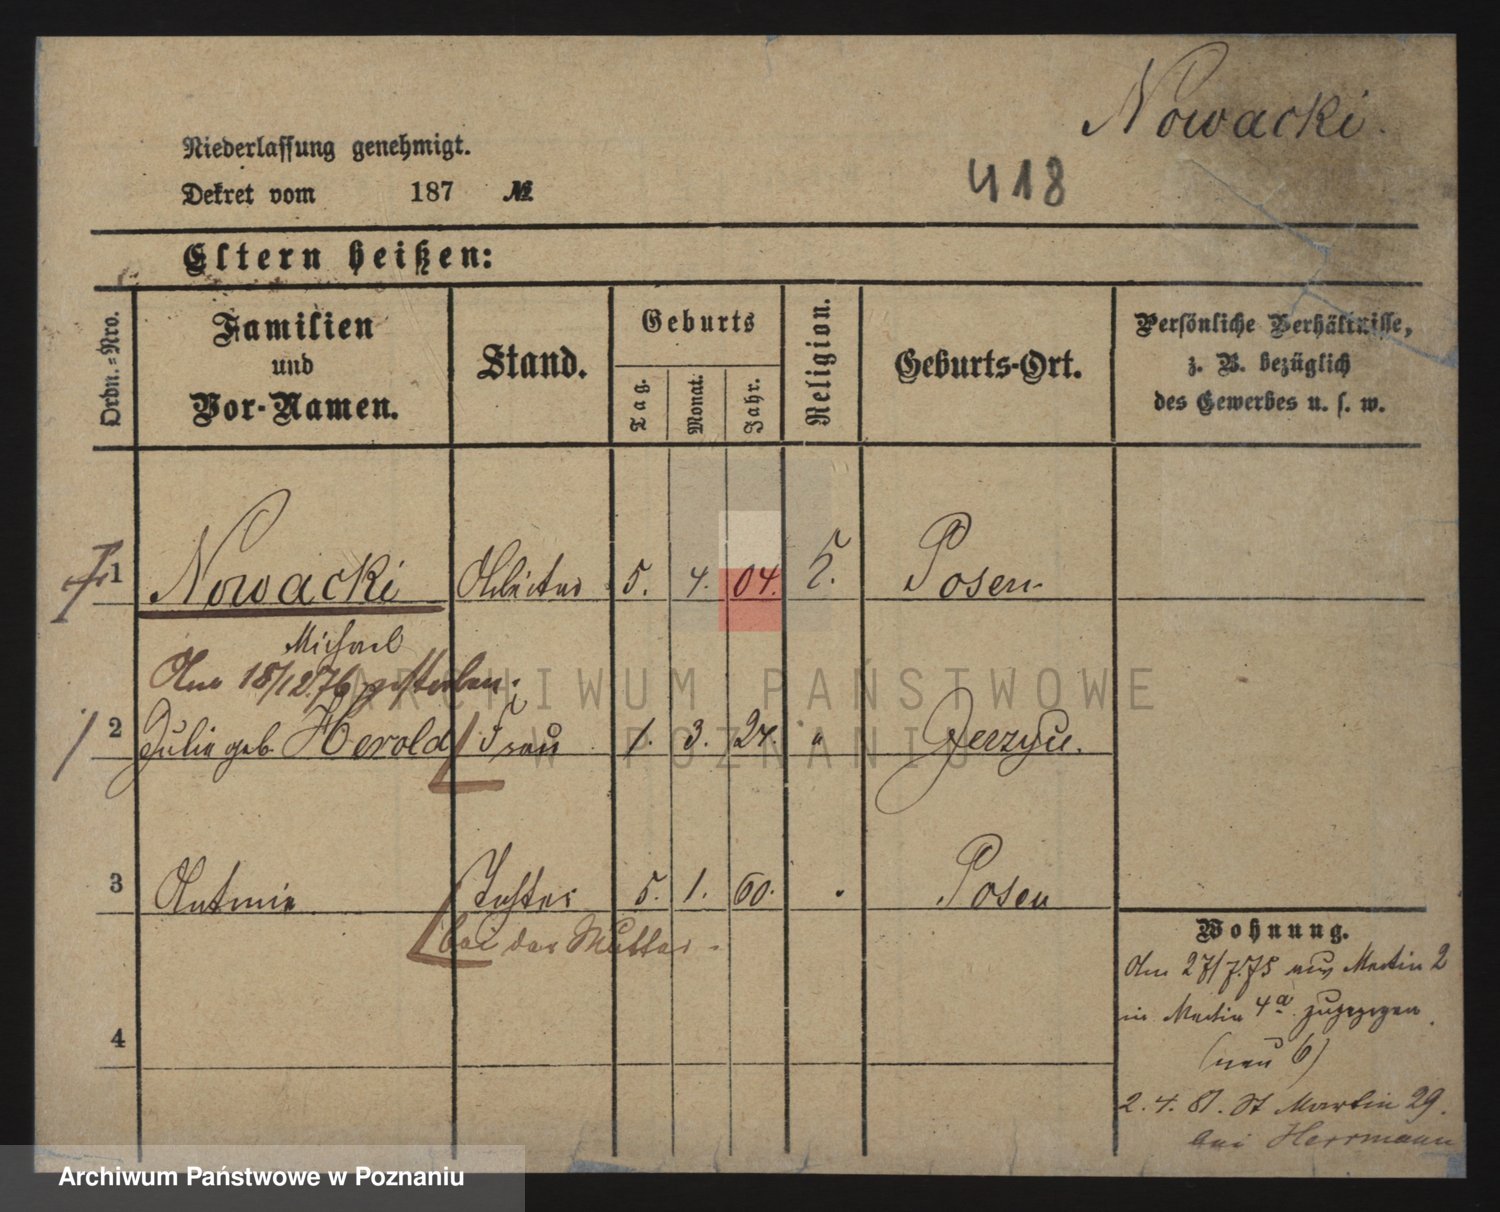 Nowacki.
Niederlassung genehmigt.
418
Dekret vom 187 №
Eltern heißen:
Ordn.-Nro.
Familien und Vor-Namen.
Stand.
Geburts
Tag.
Monat.
Jahr.
Religion.
Geburts-Ort.
Persönliche Verhältnisse,
z. B. bezüglich
des Gewerbes u. s. w.
1 Nowacki Arbeiter 5. 4. 04. Posen
Michael
Am 18/12.76 gestorben.
2 Julie geb. Herold Frau 1. 3. 24. " Jerzyce.
3 Antonie Tochter 5. 1. 60. Posen
bei der Mutter -
Wohnung.
Am 27/7.75 aus Martin 2
in Martin 4a zugezogen
4
(neu 6)
2. 4. 81. St Martin 29.
bei Herrmann
ARCHIWUM PAŃSTWOWE
W POZNANIU
Archiwum Państwowe w Poznaniu